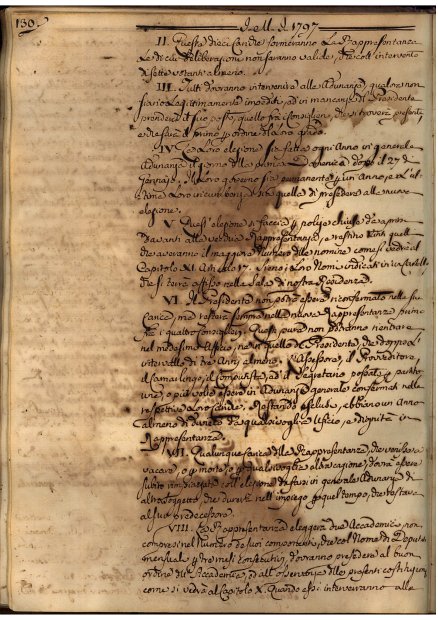 130.
D. M. S. 1797
II. Queste dieci Cariche formeranno La Rappresentanza
Le di cui deliberazioni non saranno valide, che coll intervento
di sette votanti almeno.
III. Tutti dovranno intervenire alle Adunanze, qualora non
siano Legittimamente impediti, ed in mancanza di Presidente
prenderà il suo posto, quello fra Consiglieri, che si troverà presente,
e che sia il primo per ordine di loro grado.
IV. La Loro elezione sia fatta ogni Anno in generale
Adunanza il giorno della prima Domenica dopo il 27 di
Gennajo. Il Loro governo sia permanente per un Anno, e l' ul-
tima Loro incumbenza sia quella di presedere alle nuove
elezione.
V. Quest' elezione si faccia per polize chiuse da aprirsi
davanti alla vecchia Rappresentanza, e restino eletti quelli
che averanno il maggior numero delle nomine come si vedrà al
Capitolo XI. Articolo 17. Sieno i Loro Nomi indicati in una Tabella
che si terrà affissa nella Sala di nostra Residenza.
VI. Il Presidente non potrà essere riconfermato nella sua
Carica, ma resterà
i quattro Consiglieri. Questi però non dovranno rientrare
nel medesimo Ufficio, nè in quello di Presidente, che dopo un
intervallo di tre Anni almeno. L' Assessore, il Provveditore,
il Camarlingo, il Computista, ed il Segretario possono
essere in Adunanza generale confermati nelle
respettive Loro Cariche. Restando esclusi, abbiano un Anno
almeno di divieto da qualsivoglia Ufficio, e dignità in
Rappresentanza.
VII. Qualunque Carica della Rappresentanza, che venisse a
vacare, o per morte, o per qualsivoglia altra cagione, dovrà essere
subito rimpiazzata coll' elezione da farsi in generale Adunanza di
altro soggetto, che durerà nell' impiego per quel tempo, che restava
al suo predecessore.
VIII. La Rappresentanza eleggerà due Accademici non
compresi nel numero de suoi componenti, che col Nome di Deputati
mensuali per tre mesi consecutivi, dovranno presedere al buon
ordine dell' Accademia, ed all' osservanza delle presenti costituzioni
come si vedrà al Capitolo X. Quando essi interverranno alle